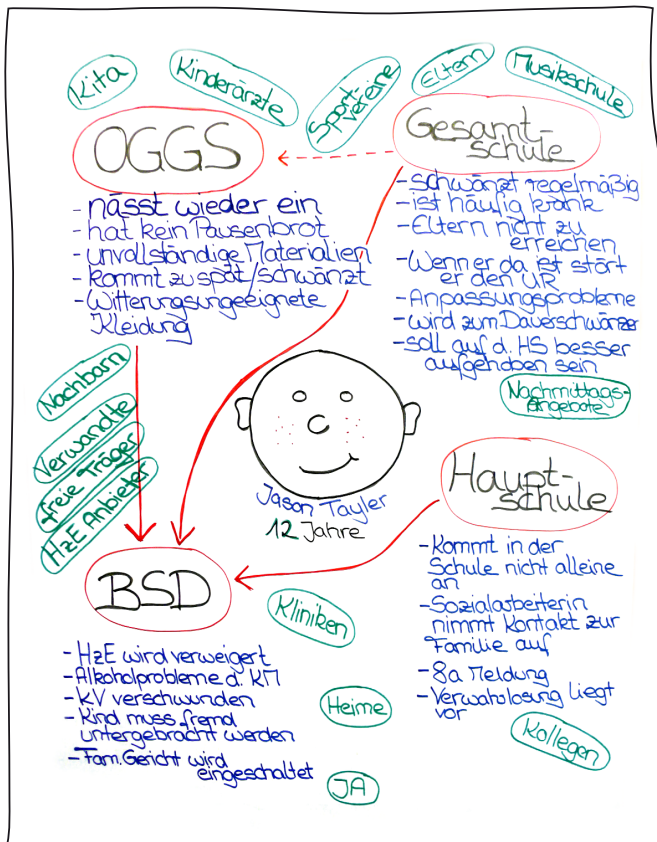 Kita
Kinderärzte
Sport-
vereine
Eltern
Musikschule
OGGS
- nässt wieder ein
- hat kein Pausenbrot
- unvollständige Materialien
- kommt zu spät/schwänzt
- Witterungsungeeignete
Kleidung
Gesamt-
schule
- schwänzt regelmäßig
- ist häufig krank
- Eltern nicht zu
erreichen
- Wenn er da ist stört
er den UR
- Anpassungsprobleme
- wird zum Dauerschwänzer
- soll auf d. HS besser
aufgehoben sein
Nachmittags-
angebote
Nachbarn
Verwandte
freie Träger
HzE Anbieter
Jason Tayler
12 Jahre
Haupt-
schule
- Kommt in der
Schule nicht alleine
an
- Sozialarbeiterin
nimmt Kontakt zur
Familie auf
- 8a Meldung
- Verwahrlosung liegt
vor
Kollegen
BSD
- HzE wird verweigert
- Alkoholprobleme d. KM
- KV verschwunden
- Kind muss fremd
untergebracht werden
- Fam.Gericht wird
eingeschaltet
Kliniken
Heime
JA